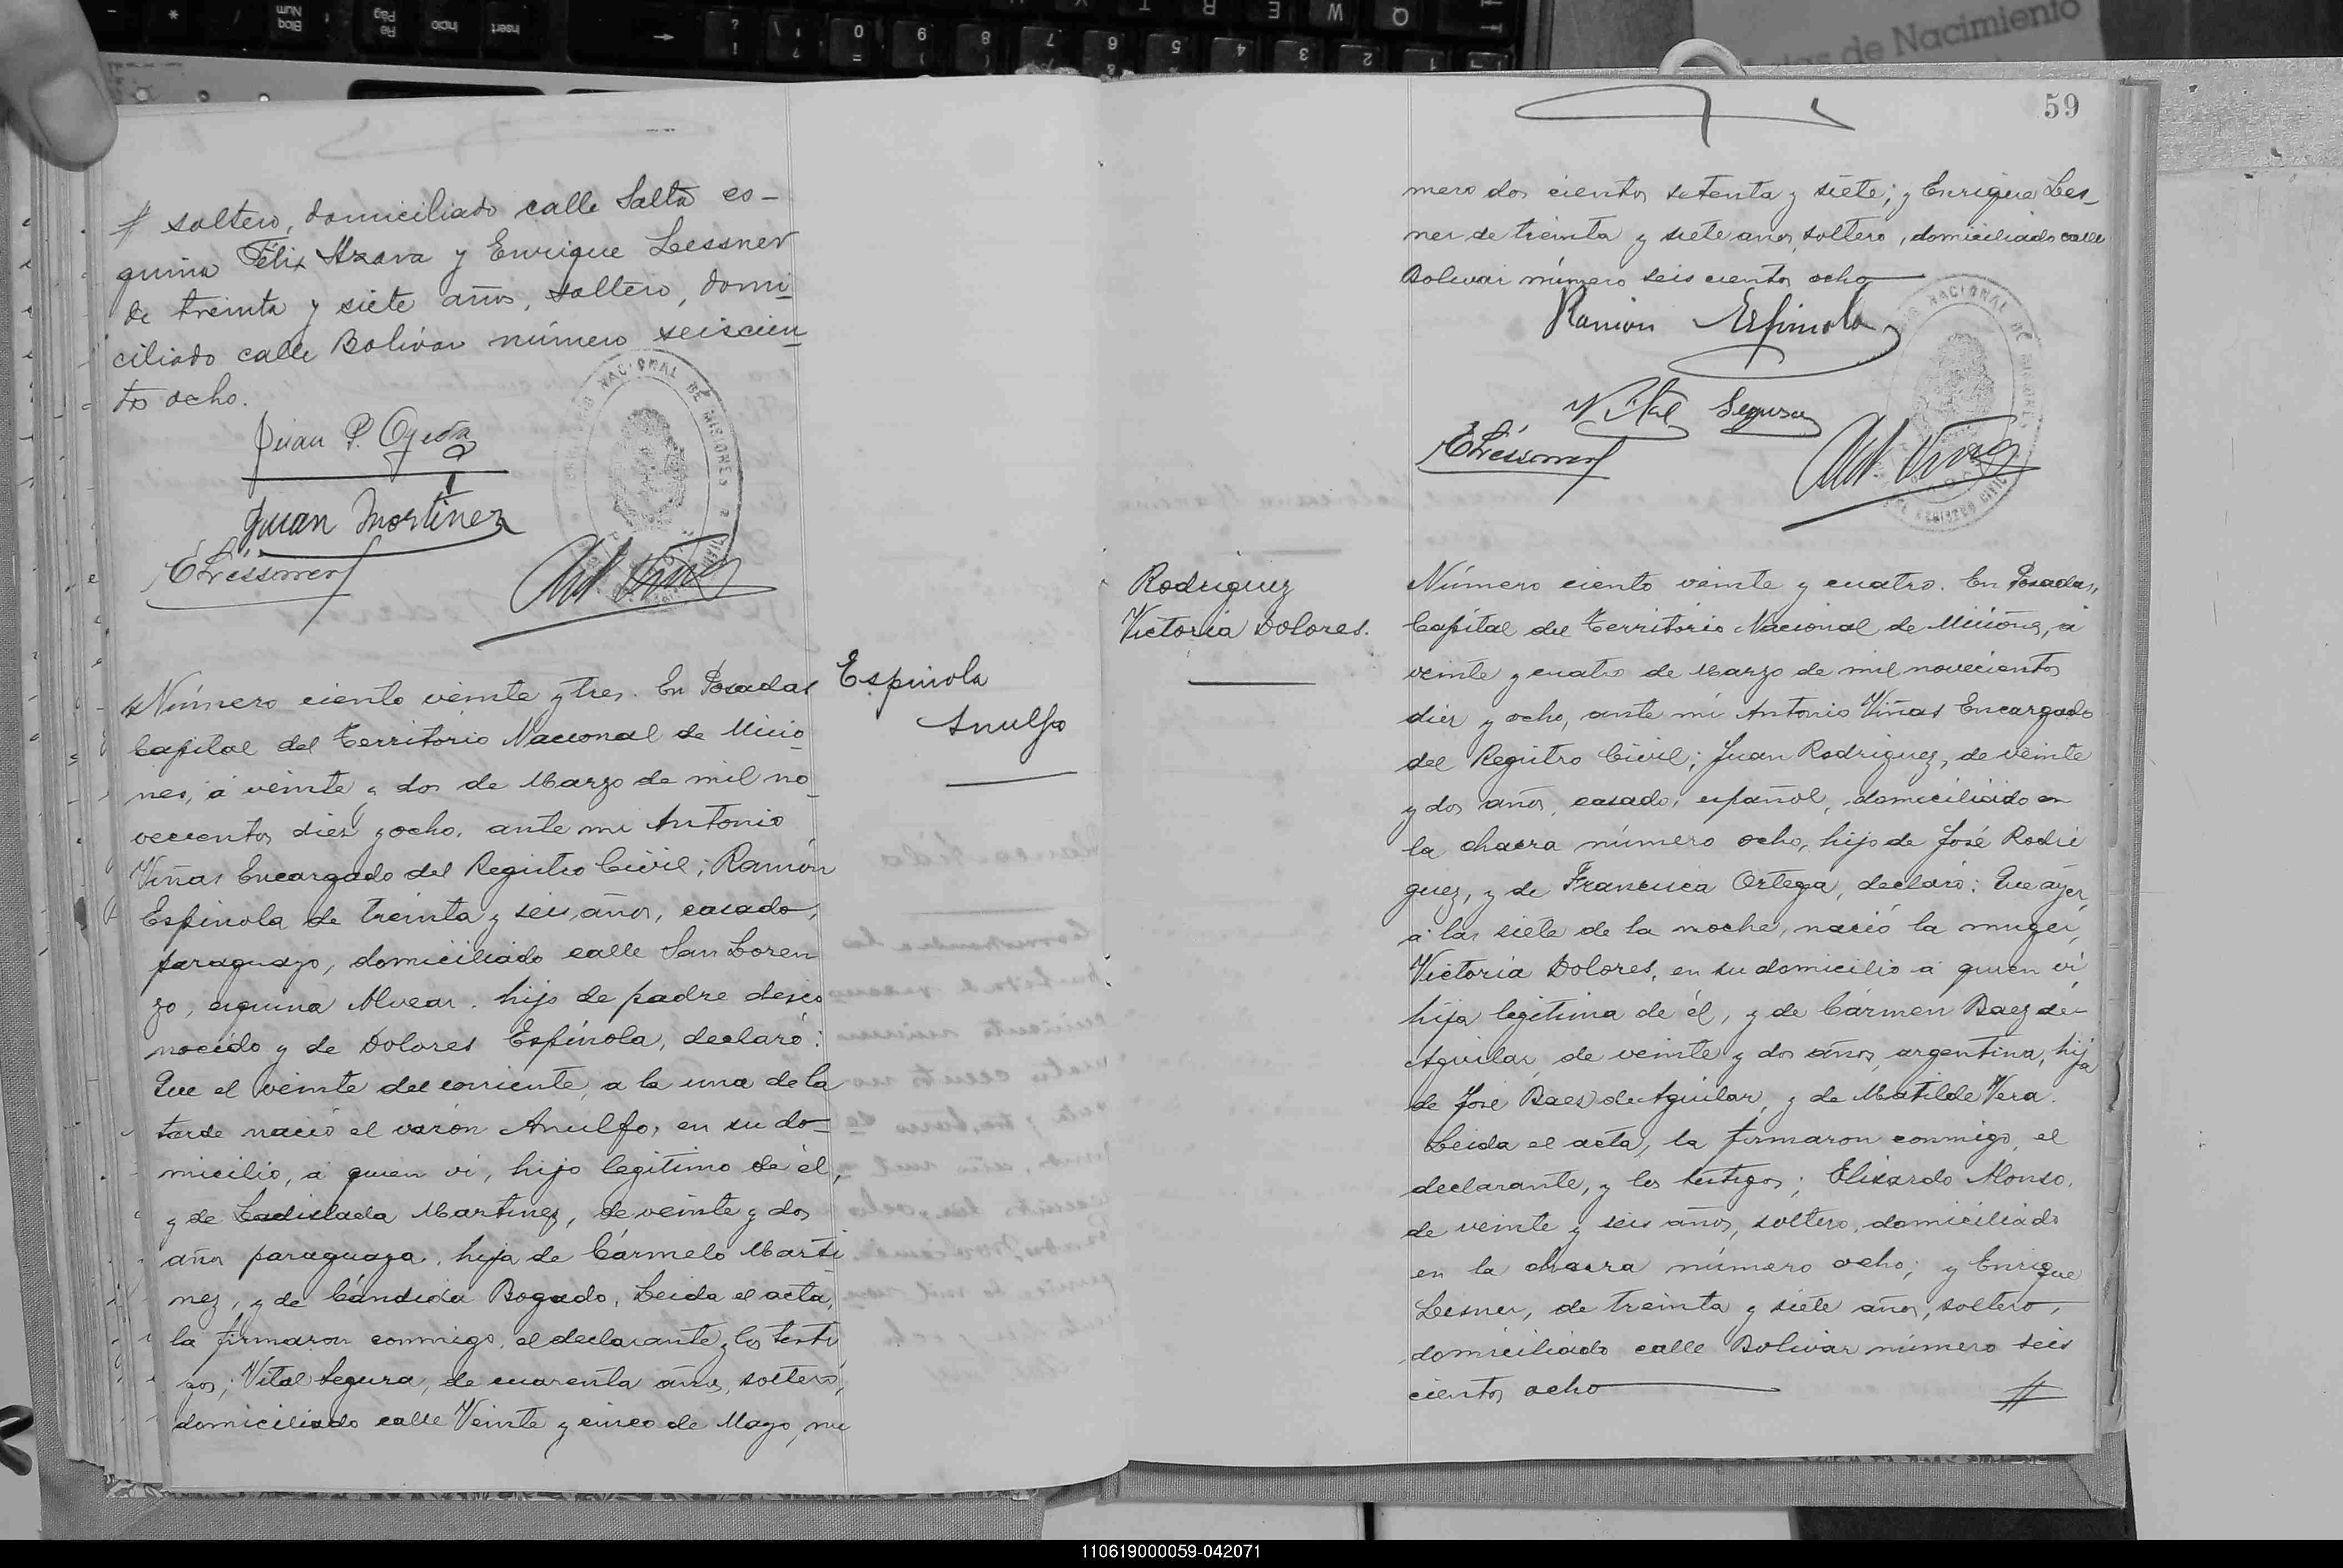 # soltero, domiciliado calle Salta es-
quina Félix Azara y Enrique Lessner
de treinta y siete años, soltero, domi-
ciliado calle Bolívar número seiscien-
tos ocho.
Juan P. Ojeda
Juan Martinez
ELessner
Ant. Viñas
Número ciento veinte y tres. En Posadas
Capital del Territorio Nacional de Misio-
nes, á veinte y dos de Marzo de mil no-
vecientos diez y ocho, ante mi Antonio
Viñas Encargado del Registro Civil; Ramón
Espinola de treinta y seis años, casado,
paraguayo, domiciliado calle San Loren
zo, esquina Alvear, hijo de padre desco
nocido y de Dolores Espínola, declaró:
Que el veinte del corriente, a la una de la
tarde nació el varón Anulfo, en su do-
micilio, á quien ví, hijo legítimo de él,
y de Ladislada Martinez, de veinte y dos
años paraguaya, hija de Cármelo Marti
nez, y de Cándida Bogado. Leida el acta,
la firmaron conmigo, el declarante y los testi
gos; Vital Segura, de cuarenta años, soltero,
domiciliado calle Veinte y cinco de Mayo, nú
Espinola
Anulfo
59
mero dos cientos setenta y siete; y Enrique Les-
ner de treinta y siete años, soltero, domiciliado calle
Bolivar número seis cientos ocho
Ramón Espinola
Vital Segura
ELessner
Ant. Viñas
Rodriguez
Victoria Dolores.
Número ciento veinte y cuatro. En Posadas,
Capital del Territorio Nacional de Misiones, á
veinte y cuatro de Marzo de mil novecientos
diez y ocho, ante mí Antonio Viñas Encargado
del Registro Civil; Juan Rodriguez, de veinte
y dos años, casado, español, domiciliado en
la chacra número ocho, hijo de José Rodri
guez, y de Francisca Ortega, declaró: Que áyer,
á las siete de la noche, nació la muger,
Victoria Dolores, en su domicilio á quien ví,
hija legítima de él, y de Cármen Baez de
Aguilar, de veinte y dos años, argentina, hija
de José Baes de Aguilar, y de Matilde Vera.
Leida el acta, la firmaron conmigo, el
declarante, y los testigos; Elisardo Alonso,
de veinte y seis años, soltero, domiciliado
en la chacra número ocho; y Enrique
Lesner, de treinta y siete años, soltero,
domiciliado calle Bolivar número seis
cientos ocho #
110619000059-042071